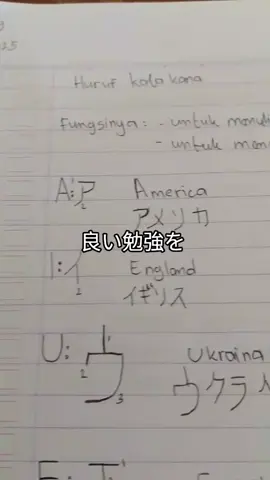 25
Huruf kata kana
Fungsinya: - untuk
- untuk
A: ア America
アメリカ
良い勉強を
I: イ England
イギリス
U: ウ Ukraina
ウクライ